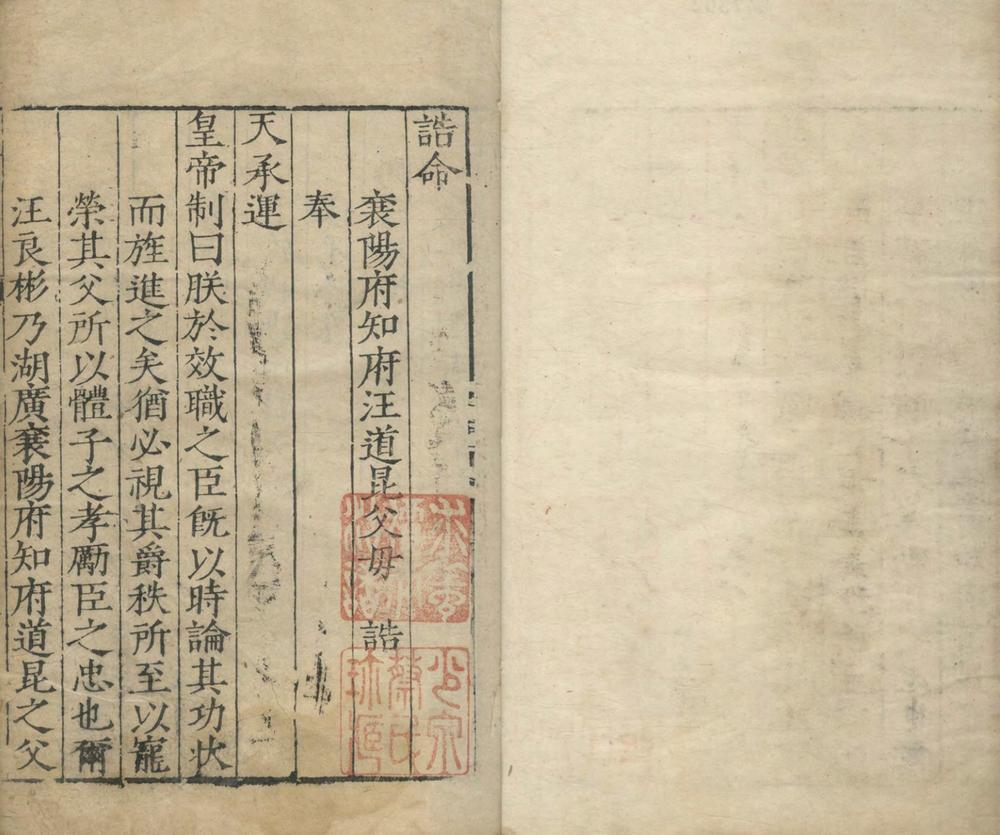 誥命
襄陽府知府汪道昆父毋 誥
奉
天承運
皇帝制曰朕於效職之臣旣以時論其功狀
而旌進之矣猶必視其爵秩所至以寵
榮其父所以體子之孝勵臣之忠也爾
汪良彬乃湖廣襄陽府知府道昆之父